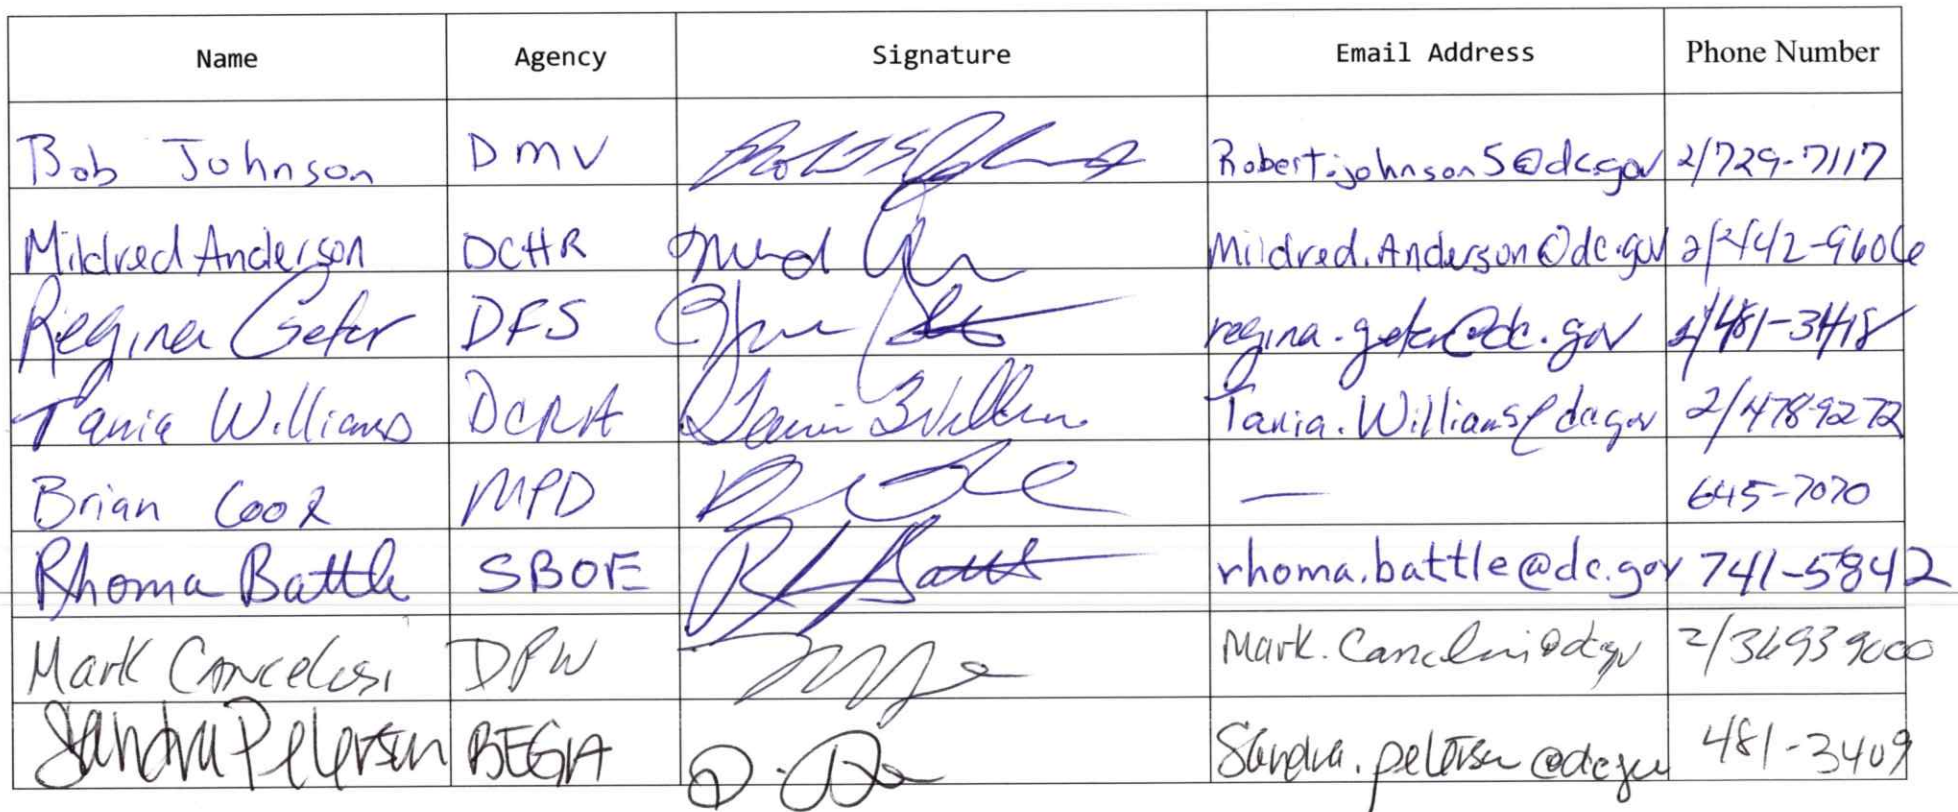 Name Agency Signature Email Address Phone Number
Bob Johnson DMV Robert.johnson5@dc.gov 2/729-7117
Mildred Anderson DCHR Mildred.Anderson@dc.gov 2/442-9606
Regina Geter DFS regina.geter@dc.gov 2/481-3418
Tania Williams DCRA Tania.Williams@dc.gov 2/478-9272
Brian Cook MPD — 645-7070
Rhoma Battle SBOE rhoma.battle@dc.gov 741-5842
Mark Cancelosi DPW
Sandra Petersen BEGA 481-3409